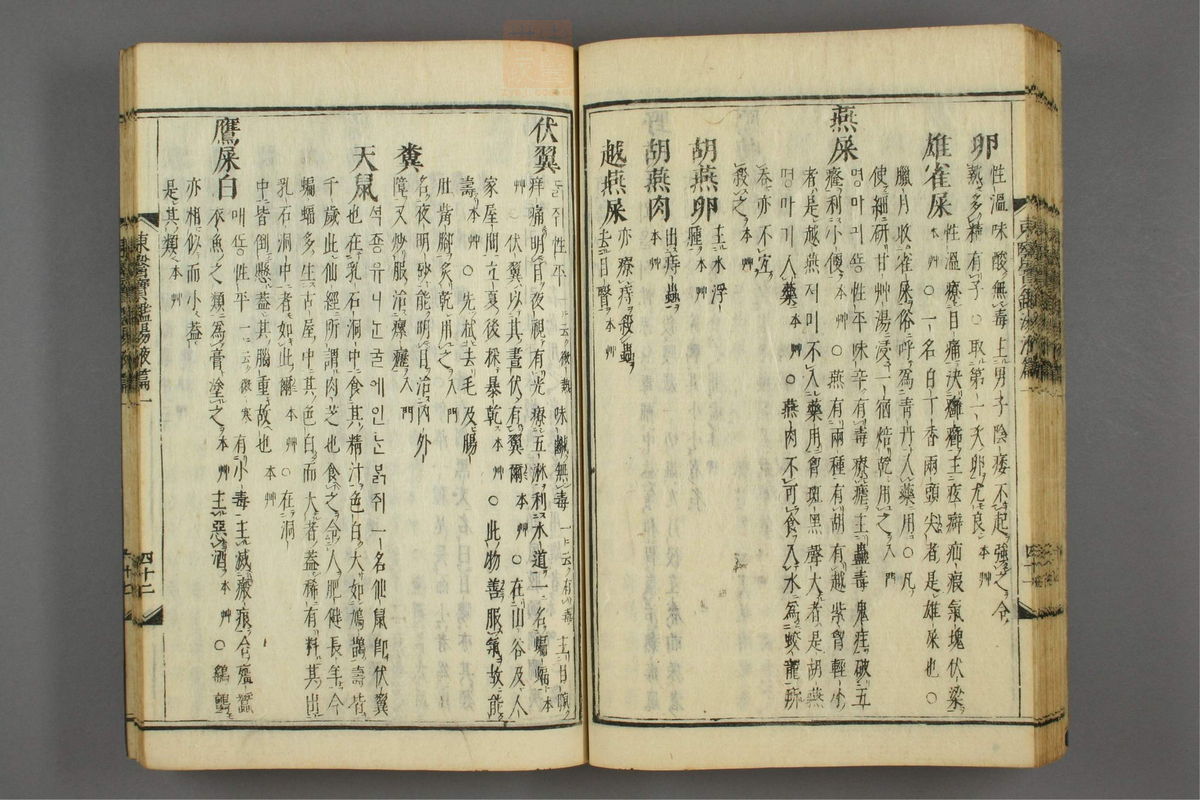 卵
性溫味酸無毒主男子陰痿不起強之令
熱多精有子○取第一次卵尤良本艸
雄雀屎
性溫療目痛決癰癤主痃癖疝瘕氣塊伏梁
○一名白丁香兩頭尖者是雄屎也○
臘月收雀屎俗呼爲青丹入藥用○凡
使細研甘艸湯浸一宿焙乾用之入門
燕屎
명마긔똥性平味辛有毒療瘧主蠱毒鬼疰破五
癃利小便本艸○燕有兩種有胡有越紫胷輕小
者是越燕져비不入藥用胷斑黑聲大者是胡燕
명마기入藥本艸○燕肉不可食入水爲蛟龍所
呑亦不宜
殺之本艸
胡燕卵
主水浮
腫本艸
胡燕肉
出痔蟲
本艸
越燕屎
亦療痔殺蟲
去目瞖本艸
伏翼
ᄃᆞᆰ쥐性平一云微熱味鹹無毒一云有毒主目瞑
痒痛明目夜視有光療五淋利水道一名蝙蝠本
艸○伏翼以其晝伏有翼爾本艸○在山谷及人
家屋間立夏後採暴乾本艸○此物善服氣故能
壽本艸○先拭去毛及腸
肚觜脚炙乾用之入門
糞
名夜明砂能明目治內外
障又炒服治瘰癧入門
天鼠
셕죵유나ᄂᆞᆫ굴에인ᄂᆞᆫᄃᆞᆰ쥐一名仙鼠卽伏翼
也在乳石洞中食其精汁色白大如鳩鵲壽皆
千歲此仙經所謂肉芝也食之令人肥健長年今
蝙蝠多生古屋中其色白而大者蓋稀有料其出
乳石洞中者如此爾本艸○在洞
中皆倒懸蓋其腦重故也本艸
鷹屎白
매똥性平一云微寒有小毒主滅瘢痕合殭蠶
衣魚之類爲膏塗之本艸主惡酒本艸○鷂䳄
亦相似而小蓋
是其類本艸
東醫寶鑑湯液篇一
四十二